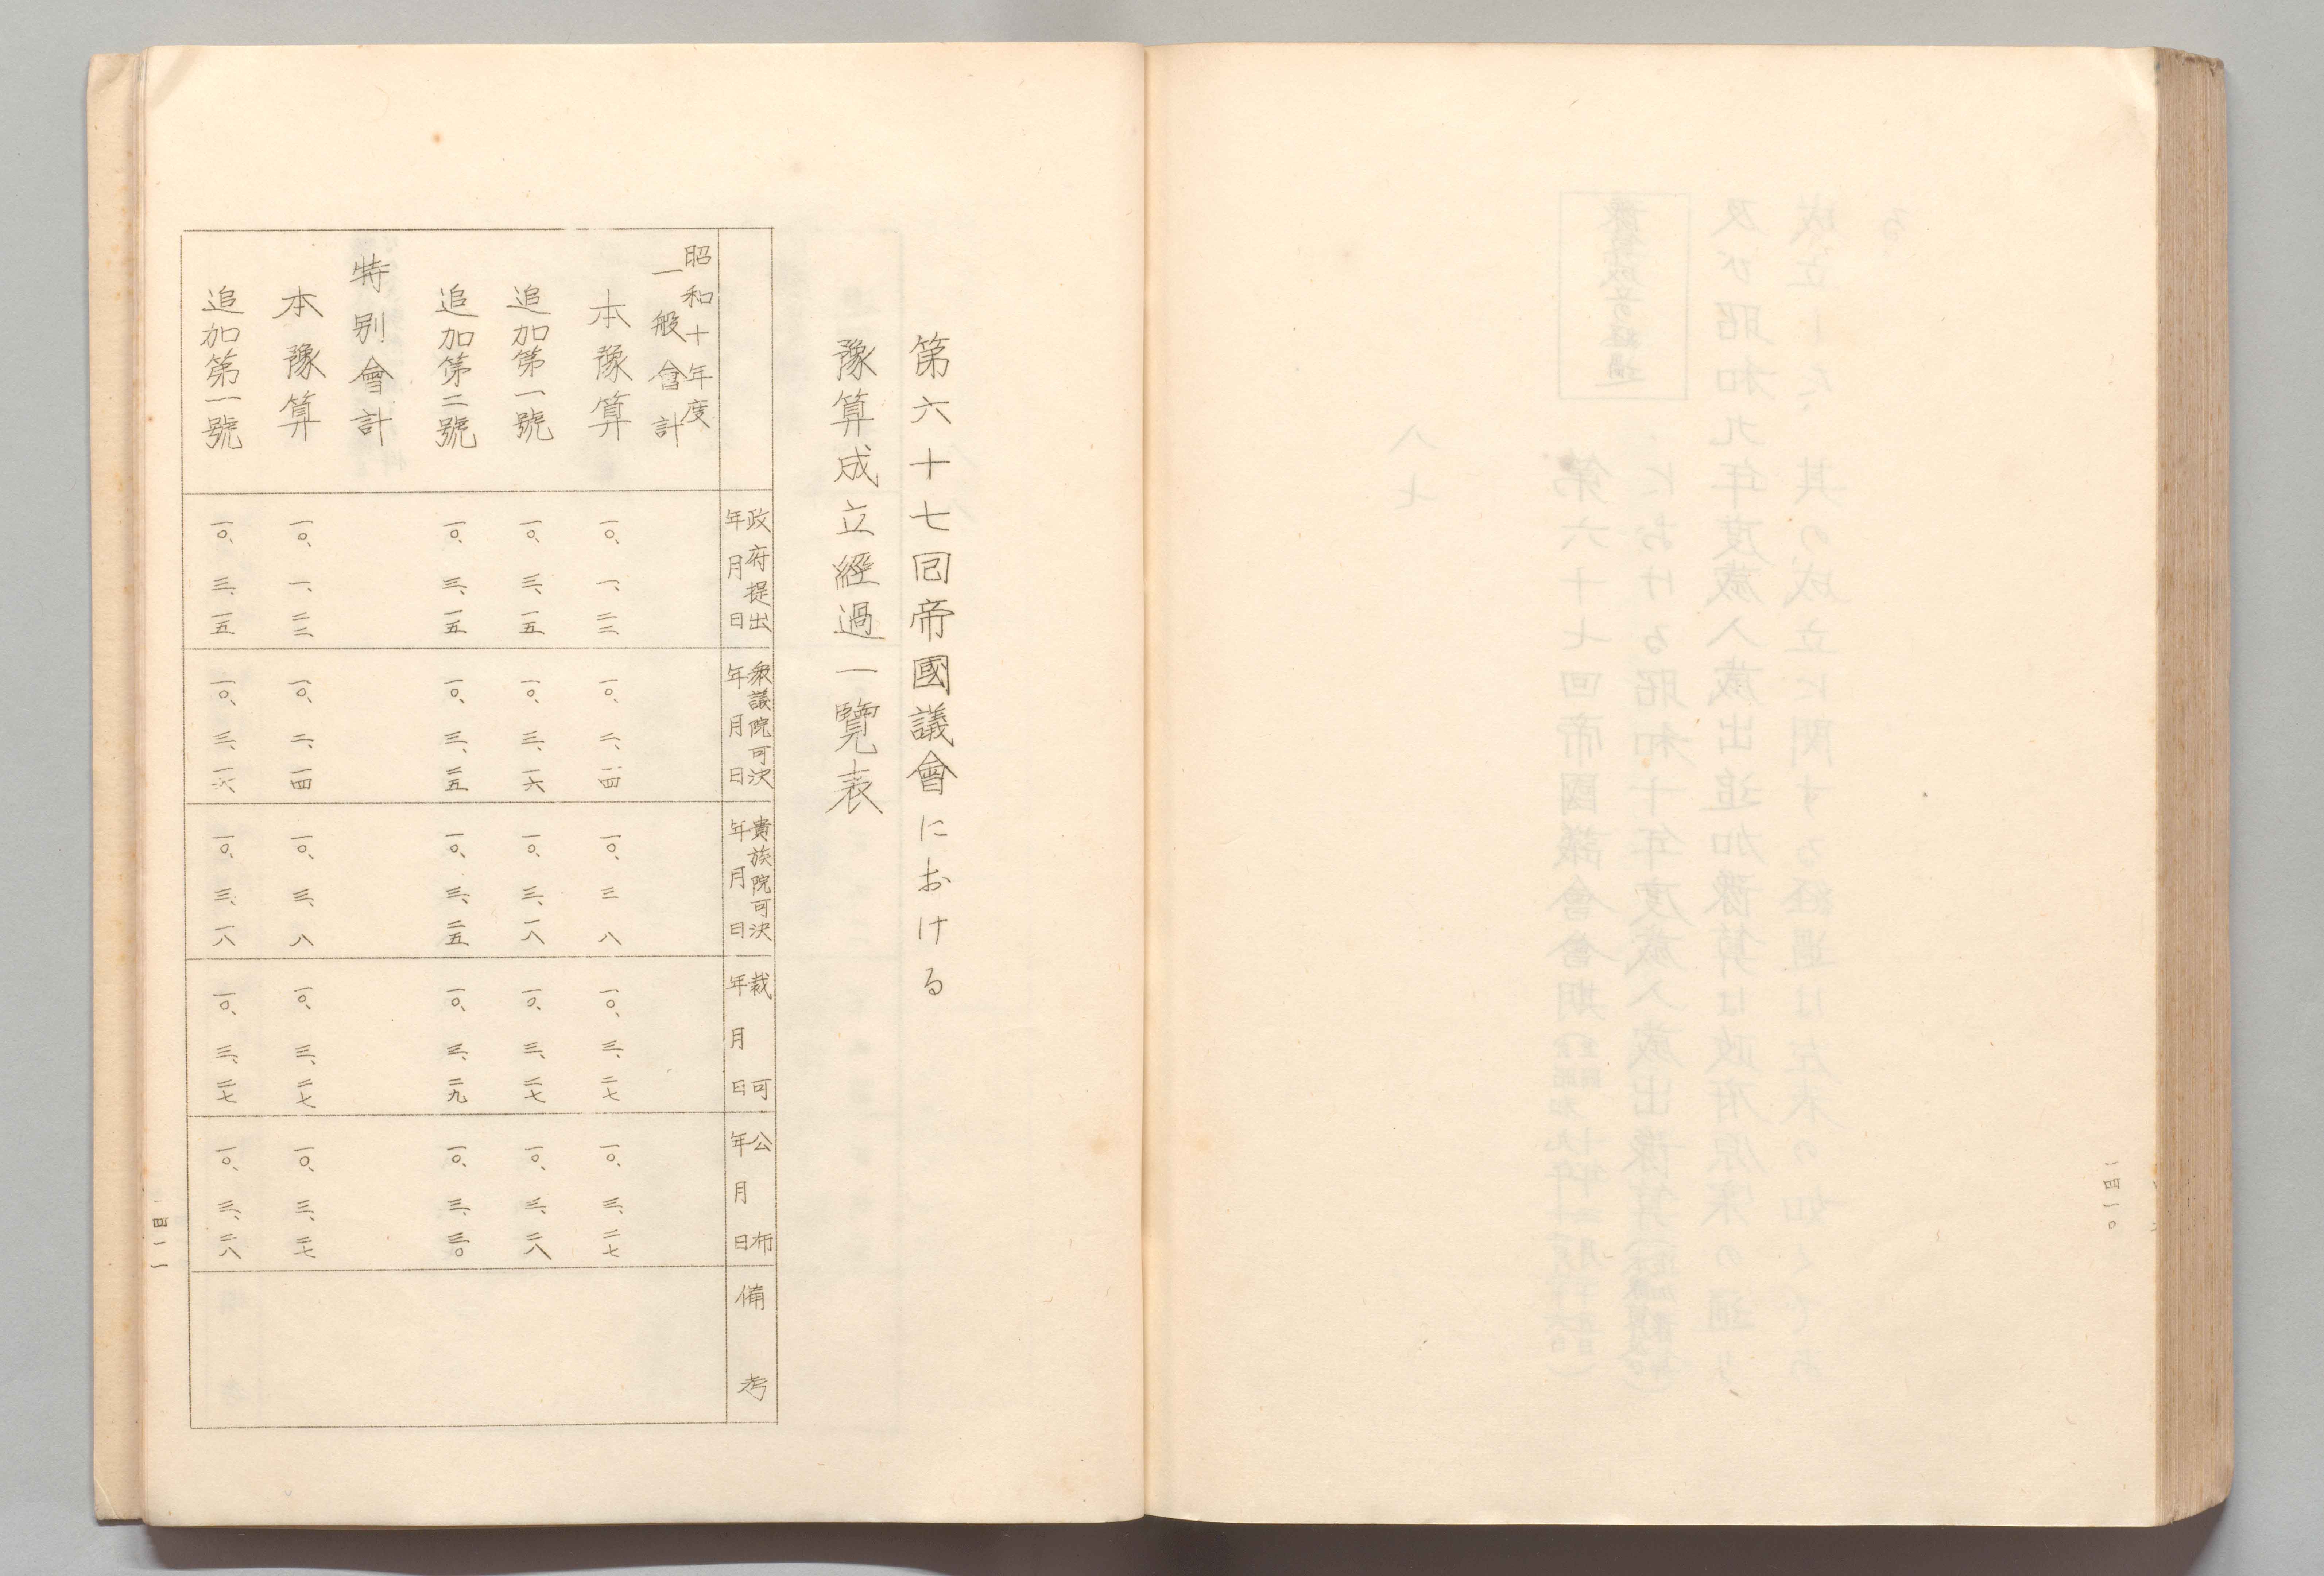 一四一〇
第六十七囘帝國議會における
豫算成立經過一覽表
政府提出年月日
衆議院可決年月日
貴族院可決年月日
裁可年月日
公布年月日
備考
昭和十年度
一般會計
本豫算 一〇、一、二二 一〇、二、一四 一〇、三八 一〇、三、二七 一〇、三、二七
追加第一號 一〇、三、一五 一〇、三、一六 一〇、三、一八 一〇、三、二七 一〇、三、二八
追加第二號 一〇、三、一五 一〇、三、二五 一〇、三、二五 一〇、三、二九 一〇、三、三〇
特別會計
本豫算 一〇、一、二二 一〇、二、一四 一〇、三、八 一〇、三、二七 一〇、三、二七
追加第一號 一〇、三、一五 一〇、三、一六 一〇、三、一八 一〇、三、二七 一〇、三、二八
一四一一